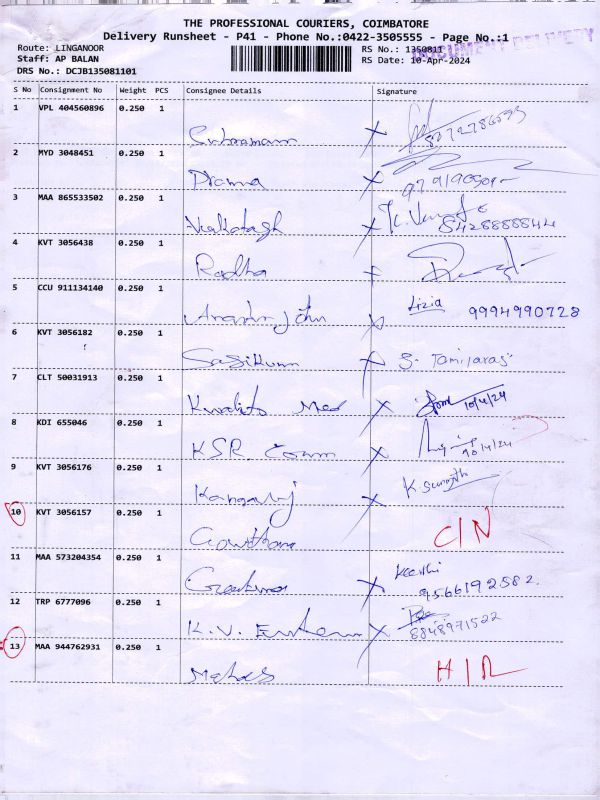 THE PROFESSIONAL COURIERS, COIMBATORE
Delivery Runsheet - P41 - Phone No.:0422-3505555 - Page No.:1
Route: LINGANOOR
Staff: AP BALAN
DRS No.: DCJB135081101
RS No.: 1350811
RS Date: 10-Apr-2024
DOCUMENT DELIVERY
S No Consignment No Weight PCS Consignee Details Signature
1 VPL 404560896 0.250 1
2 MYD 3048451 0.250 1
3 MAA 865533502 0.250 1
8428888844
4 KVT 3056438 0.250 1
Radha
5 CCU 911134140 0.250 1
John
Lizia 9994990728
6 KVT 3056182 0.250 1
S. Tamilarasi
7 CLT 50031913 0.250 1
Med 10/4/24
8 KDI 655046 0.250 1
KSR Comm 10/4/24
9 KVT 3056176 0.250 1
Kangaraj
10 KVT 3056157 0.250 1
Gowthama C/N
11 MAA 573204354 0.250 1
Keerthi
9566192582.
12 TRP 6777096 0.250 1
K.V. 8848971522
13 MAA 944762931 0.250 1
H/R